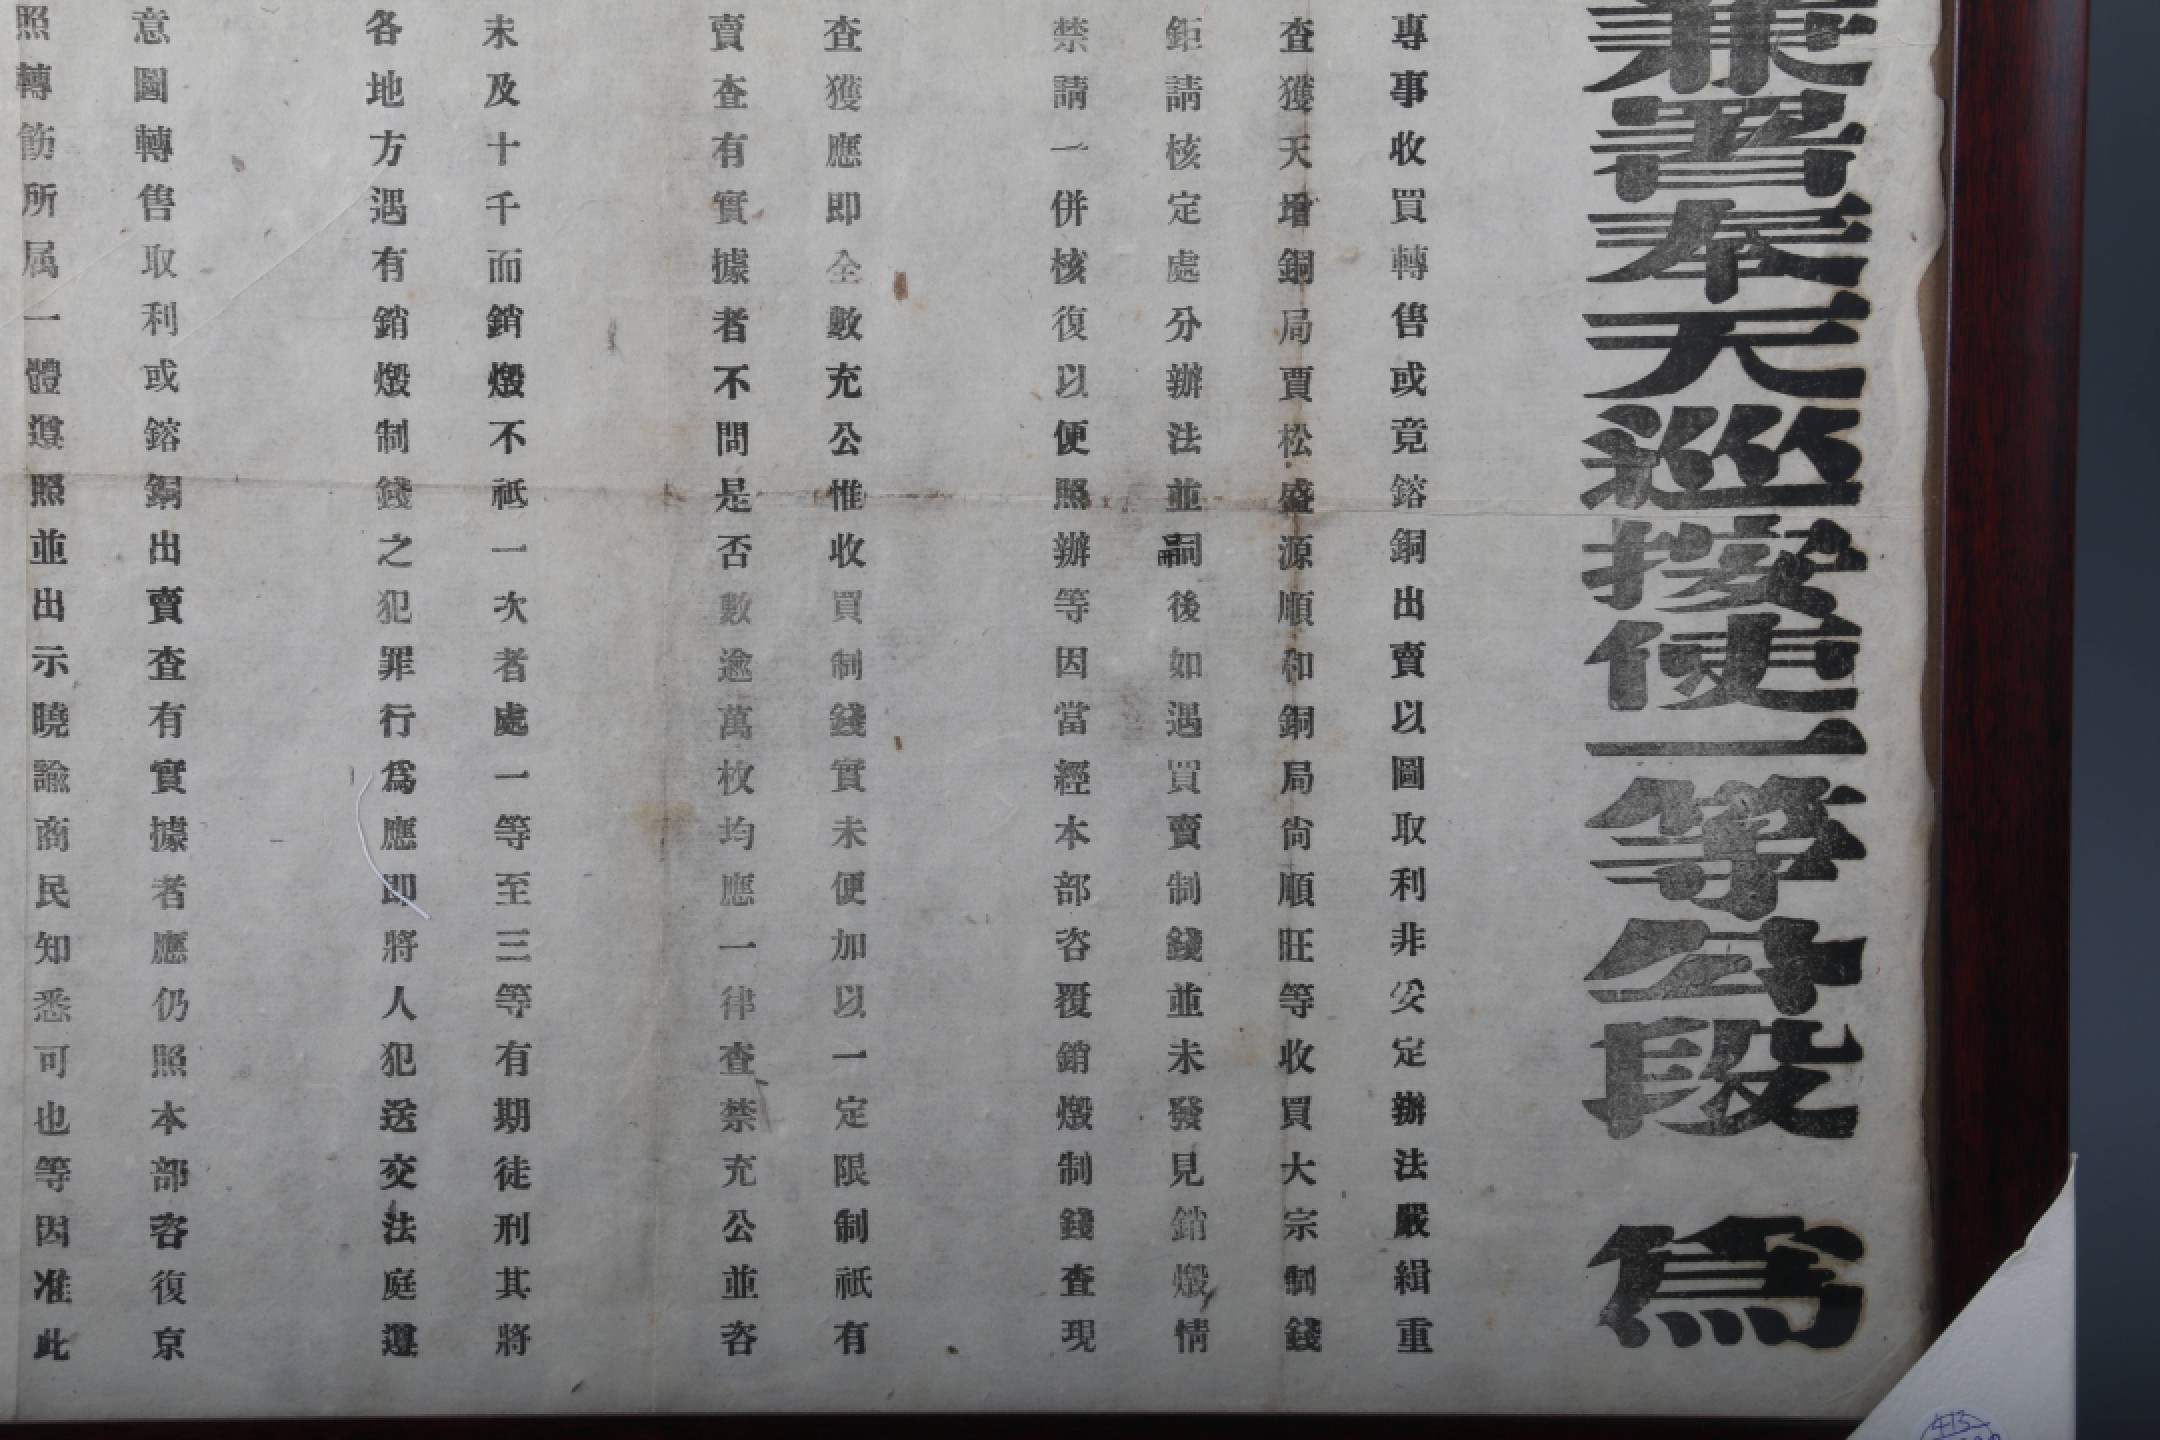 兼署奉天巡按使一等公段 爲
專事收買轉售或竟鎔銅出賣以圖取利非妥定辦法嚴緝重
查獲天增銅局賈松盛源順和銅局尙順旺等收買大宗制錢
鉅請核定處分辦法並嗣後如遇買賣制錢並未發見銷燬情
禁請一併核復以便照辦等因當經本部咨覆銷燬制錢查現
查獲應即全數充公惟收買制錢實未便加以一定限制祇有
賣查有實據者不問是否數逾萬枚均應一律查禁充公並咨
未及十千而銷燬不祇一次者處一等至三等有期徒刑其將
各地方遇有銷燬制錢之犯罪行爲應即將人犯送交法庭遵
意圖轉售取利或鎔銅出賣查有實據者應仍照本部咨復京
照轉飭所属一體遵照並出示曉諭商民知悉可也等因准此